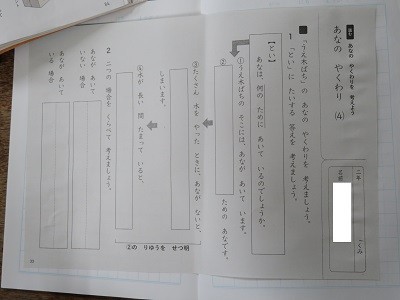 あな の やくわりを 考えよう
あなの やくわり (4)
二年
くみ
名前
■ 「うえ木ばち」の あなの やくわりを 考えましょう。
1 「とい」に たいする 答えを 考えましょう。
【とい】
あなは、何の ために あいて いるのでしょうか。
①うえ木ばちの そこには、あなが あいて います。
②
ための あなです。
③たくさん 水を やった ときに、あなが ないと、
しまいます。
④水が 長い 間 たまって いると、
②の りゆうを せつ明
2 二つの 場合を くらべて 考えましょう。
あなが あいて
いない 場合
あなが あいて
いる 場合